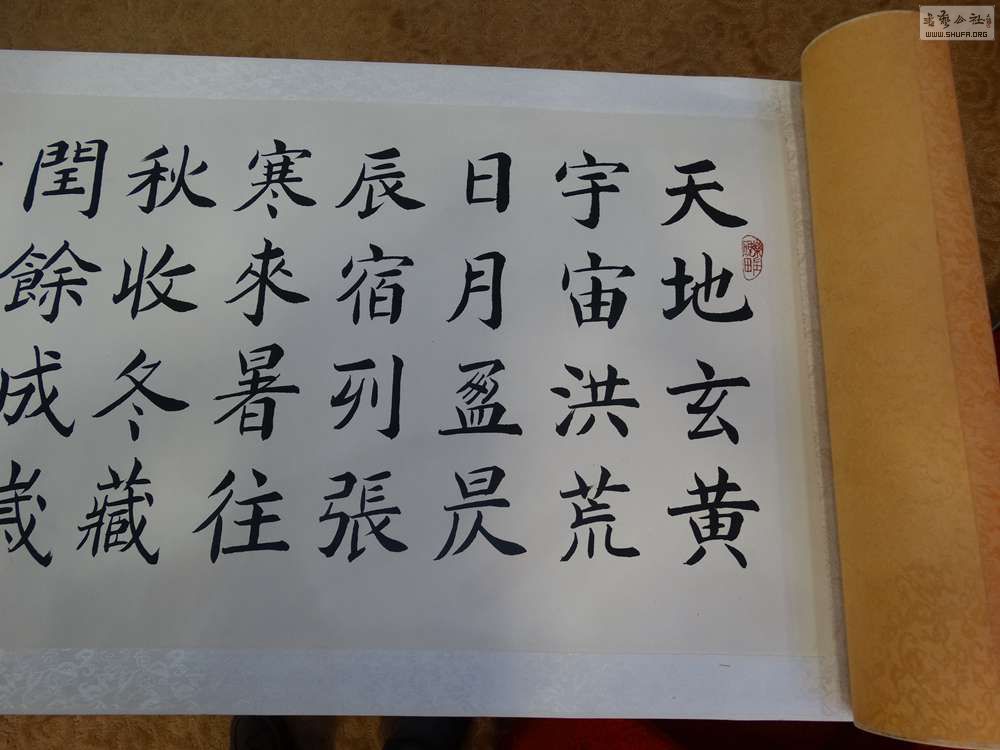 天地玄黄
宇宙洪荒
日月盈昃
辰宿列張
寒來暑往
秋收冬藏
閏餘成歲
WWW.SHUFA.ORG